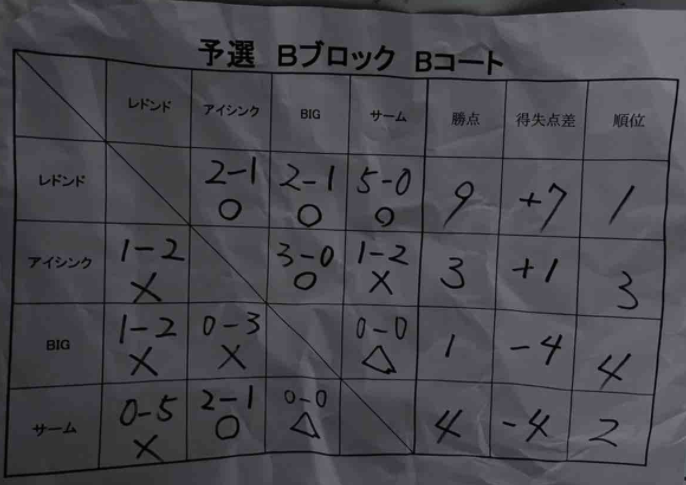 予選 Bブロック Bコート
レドンド アイシンク BIG サーム 勝点 得失点差 順位
レドンド 2-1 2-1 5-0 9 +7 1
○ ○ ○
アイシンク 1-2 3-0 1-2 3 +1 3
× ○ ×
BIG 1-2 0-3 0-0 1 -4 4
× × △
サーム 0-5 2-1 0-0 4 -4 2
× ○ △